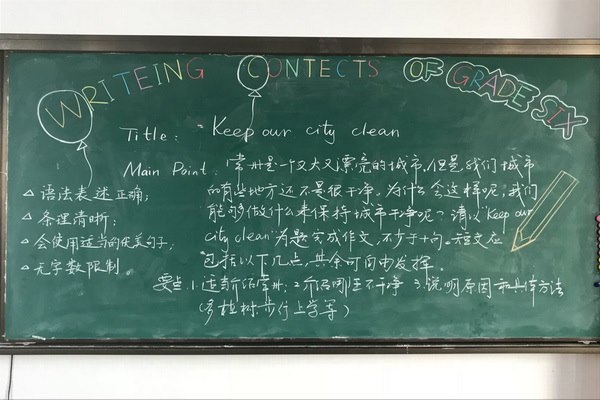 WRITEING CONTECTS OF GRADE SIX
Title: "Keep our city clean
Main Point: 常州是一个又大又漂亮的城市,但是我们城市
的有些地方还不是很干净,为什么会这样呢?我们
能够做什么来保持城市干净呢?请以"Keep our
city clean"为题完成作文,不少于十句。短文应
包括以下几点,其余可自由发挥
要点 1. 常州; 2. 不干净 3. 说明原因和具体方法
(多植树,步行上学等)
△语法表述正确;
△条理清晰;
△会使用适当的优美句子;
△无字数限制。